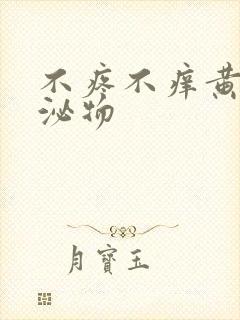 不疼不痒黄
泌物
月寳玉